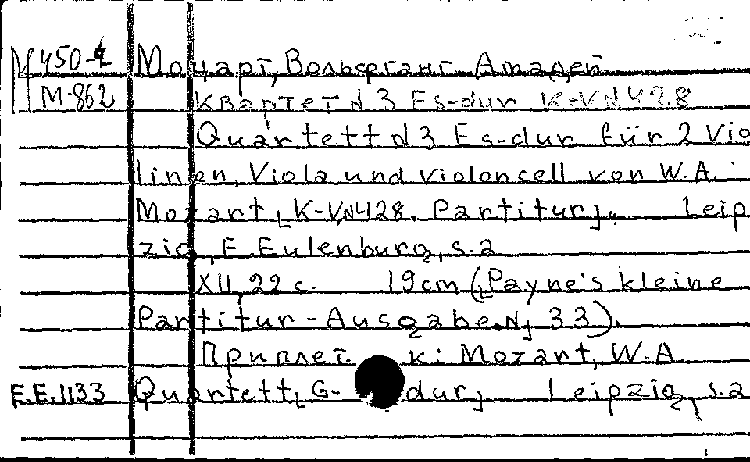 М 450-
М-862
Моцарт, Вольфганг Амадей
Квартет N 3 Es-dur K-V N 428
Quartett N 3 Es-dur für 2 Vio
linen, Viola und Violoncell von W.A.
Mozart [K-V N 428. Partitur]. Leip
zig, E. Eulenburg, s.a
XII, 22 с. 19 cm ([Payne's kleine
Partitur-Ausgabe. N] 33).
Приплет. к: Mozart, W.A
E.E.1133 Quartett [G-dur] Leipzig, s.a